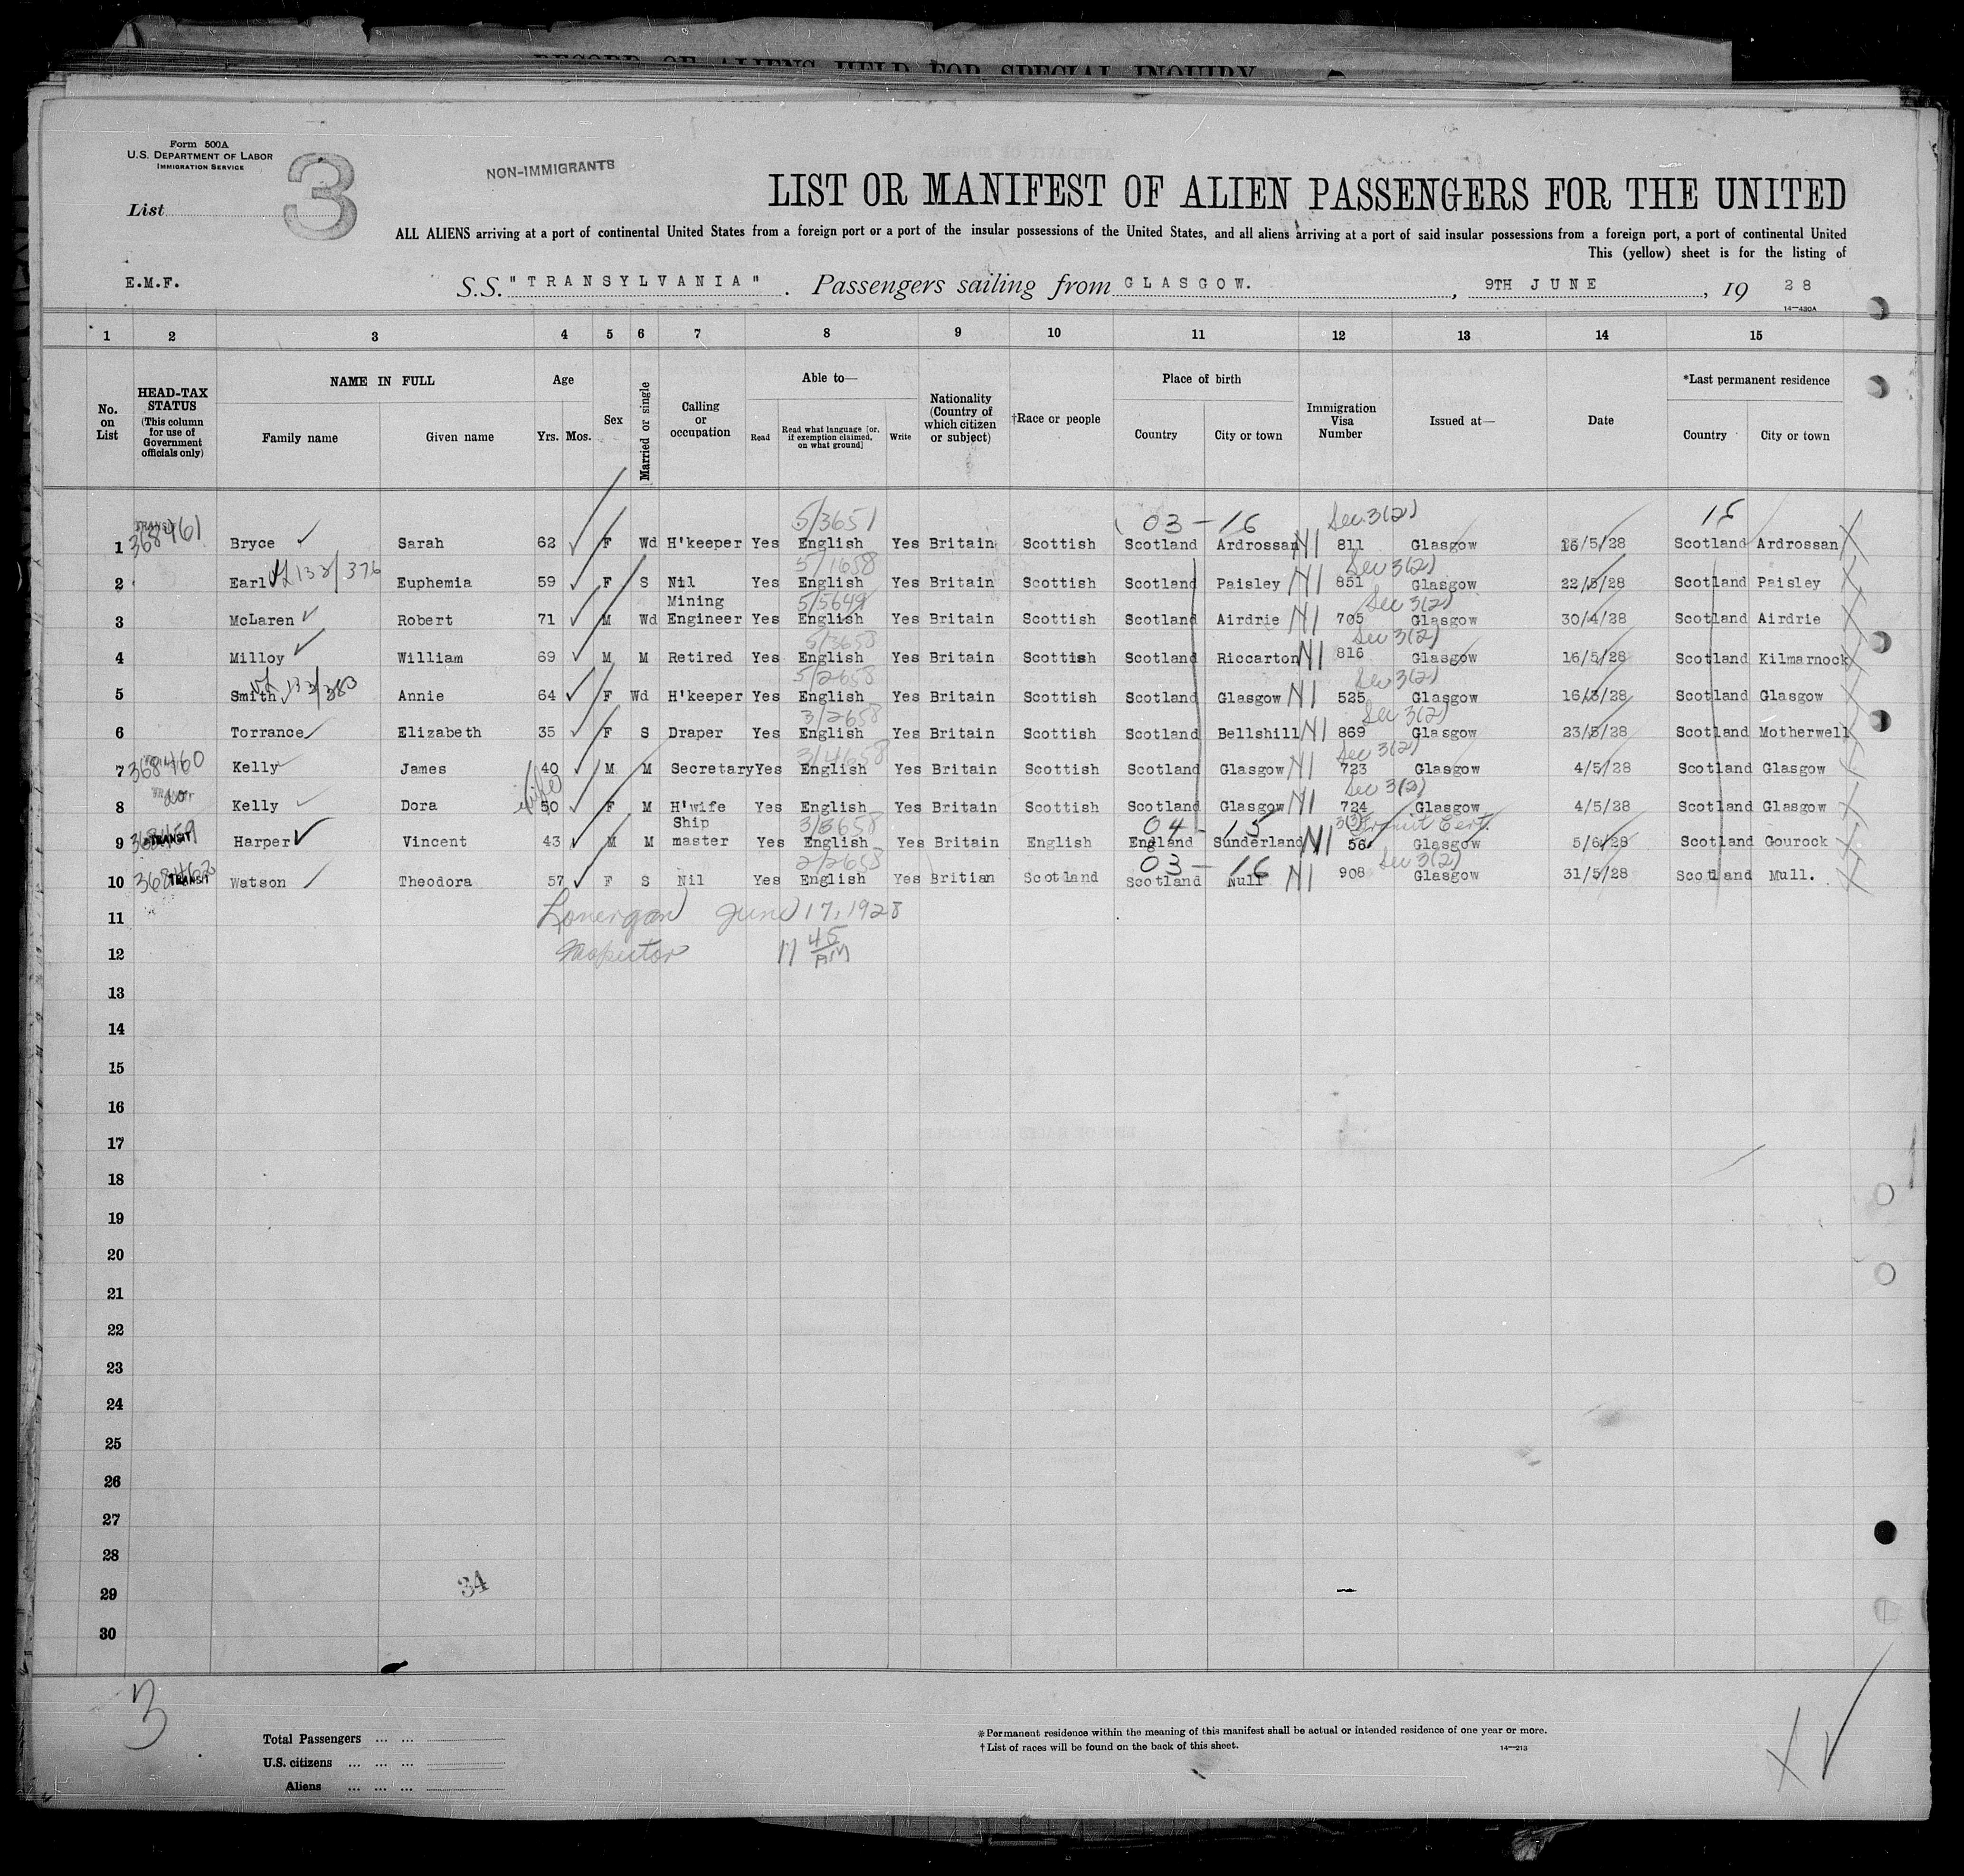 RECORD OF ALIENS HELD FOR SPECIAL INQUIRY
Form 500A
U.S. DEPARTMENT OF LABOR
IMMIGRATION SERVICE
List 3
NON-IMMIGRANTS
LIST OR MANIFEST OF ALIEN PASSENGERS FOR THE UNITED
ALL ALIENS arriving at a port of continental United States from a foreign port or a port of the insular possessions of the United States, and all aliens arriving at a port of said insular possessions from a foreign port, a port of continental United
This (yellow) sheet is for the listing of
E.M.F. S.S. "TRANSYLVANIA". Passengers sailing from GLASGOW. , 9TH JUNE , 19 28
14—430A
1 2 3 4 5 6 7 8 9 10 11 12 13 14 15
No. on List
HEAD-TAX STATUS (This column for use of Government officials only)
NAME IN FULL
Family name Given name
Age
Yrs. Mos.
Sex
Married or single
Calling or occupation
Able to—
Read Read what language [or, if exemption claimed, on what ground] Write
Nationality (Country of which citizen or subject)
†Race or people
Place of birth
Country City or town
Immigration Visa Number
Issued at—
Date
*Last permanent residence
Country City or town
TRANSIT 5/3651 03 - 16 Sec 3(2) 15
1 368461 Bryce Sarah 62 F Wd H'keeper Yes English Yes Britain Scottish Scotland Ardrossan N1 811 Glasgow 16/5/28 Scotland Ardrossan
5/1658 Sec 3(2)
2 Earl 133/376 Euphemia 59 F S Nil Yes English Yes Britain Scottish Scotland Paisley N1 851 Glasgow 22/5/28 Scotland Paisley
5/5649 Sec 3(2)
3 McLaren Robert 71 M Wd Mining Engineer Yes English Yes Britain Scottish Scotland Airdrie N1 705 Glasgow 30/4/28 Scotland Airdrie
5/3658 Sec 3(2)
4 Milloy William 69 M M Retired Yes English Yes Britain Scottish Scotland Riccarton N1 816 Glasgow 16/5/28 Scotland Kilmarnock
5/2658 Sec 3(2)
5 Smith 133/383 Annie 64 F Wd H'keeper Yes English Yes Britain Scottish Scotland Glasgow N1 525 Glasgow 16/3/28 Scotland Glasgow
3/2658 Sec 3(2)
6 Torrance Elizabeth 35 F S Draper Yes English Yes Britain Scottish Scotland Bellshill N1 869 Glasgow 23/5/28 Scotland Motherwell
3/4658 Sec 3(2)
7 368460 Kelly James 40 M M Secretary Yes English Yes Britain Scottish Scotland Glasgow N1 723 Glasgow 4/5/28 Scotland Glasgow
wife Sec 3(2)
8 Kelly Dora 50 F M H'wife Yes English Yes Britain Scottish Scotland Glasgow N1 724 Glasgow 4/5/28 Scotland Glasgow
3/3658 04 - 15 3(3) Transit Cert.
9 368459 TRANSIT Harper Vincent 43 M M Ship master Yes English Yes Britain English England Sunderland N1 56 Glasgow 5/6/28 Scotland Gourock
2/2658 03 - 16 Sec 3(2)
10 TRANSIT Watson Theodora 57 F S Nil Yes English Yes Britian Scotland Scotland Null N1 908 Glasgow 31/5/28 Scotland Mull.
11 Lonergan June 17, 1928
12 Inspector 11 45 AM
13
14
15
16
17
18
19
20
21
22
23
24
25
26
27
28
29 34
30
3
Total Passengers ... ...
U.S. citizens ... ... ...
Aliens ... ... ...
*Permanent residence within the meaning of this manifest shall be actual or intended residence of one year or more.
†List of races will be found on the back of this sheet.
14—213